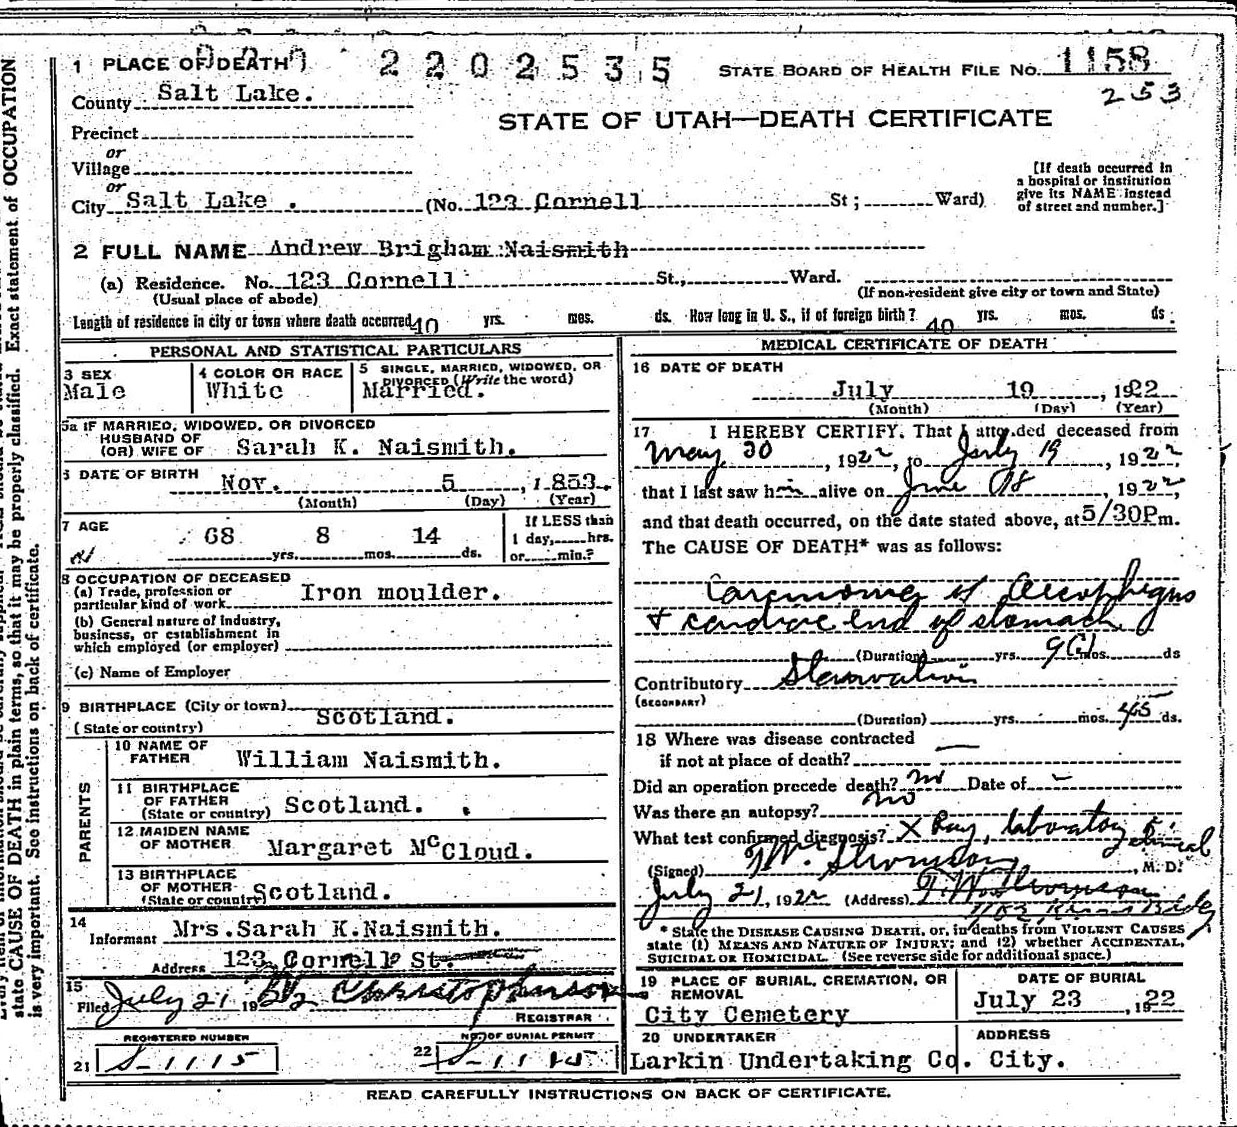 1 PLACE OF DEATH
2202535
STATE BOARD OF HEALTH FILE NO. 1158
253
County Salt Lake.
STATE OF UTAH—DEATH CERTIFICATE
Precinct
or
Village
or
City Salt Lake . (No. 123 Cornell St; Ward)
[If death occurred in a hospital or institution give its NAME instead of street and number.]
2 FULL NAME Andrew Brigham Naismith
(a) Residence. No. 123 Cornell St., Ward.
(Usual place of abode) (If non-resident give city or town and State)
Length of residence in city or town where death occurred 40 yrs. mos. ds. How long in U. S., if of foreign birth? 40 yrs. mos. ds.
PERSONAL AND STATISTICAL PARTICULARS
3 SEX
Male
4 COLOR OR RACE
White
5 SINGLE, MARRIED, WIDOWED, OR DIVORCED (Write the word)
Married.
5a IF MARRIED, WIDOWED, OR DIVORCED
HUSBAND OF
(OR) WIFE OF Sarah K. Naismith.
6 DATE OF BIRTH
Nov. 5, 1853.
(Month) (Day) (Year)
7 AGE
68 yrs. 8 mos. 14 ds.
If LESS than
1 day, hrs.
or min.?
8 OCCUPATION OF DECEASED
(a) Trade, profession or
particular kind of work Iron moulder.
(b) General nature of industry,
business, or establishment in
which employed (or employer)
(c) Name of Employer
9 BIRTHPLACE (City or town)
(State or country) Scotland.
PARENTS
10 NAME OF
FATHER William Naismith.
11 BIRTHPLACE
OF FATHER
(State or country) Scotland.
12 MAIDEN NAME
OF MOTHER Margaret McCloud.
13 BIRTHPLACE
OF MOTHER
(State or country) Scotland.
14
Informant Mrs. Sarah K. Naismith.
Address 123 Cornell St.
15
Filed July 21 192
REGISTRAR
REGISTERED NUMBER
21 S-1115
NO. OF BURIAL PERMIT
22
MEDICAL CERTIFICATE OF DEATH
16 DATE OF DEATH
July 19, 1922
(Month) (Day) (Year)
17 I HEREBY CERTIFY, That I attended deceased from
May 30, 1922, to July 19, 1922,
that I last saw him alive on June 1922,
and that death occurred, on the date stated above, at 5/30P m.
The CAUSE OF DEATH* was as follows:
Carcinoma of Oesophegus
& cardiac end of stomach
(Duration) yrs. 9 mos. ds
Contributory Starvation
(SECONDARY)
(Duration) yrs. mos. 45 ds.
18 Where was disease contracted
if not at place of death?
Did an operation precede death? no Date of -
Was there an autopsy? no
What test confirmed diagnosis? X Ray, laboratory
(Signed) M. D.
July 21, 1922 (Address)
* State the DISEASE CAUSING DEATH, or, in deaths from VIOLENT CAUSES
state (1) MEANS AND NATURE OF INJURY; and (2) whether ACCIDENTAL,
SUICIDAL OR HOMICIDAL. (See reverse side for additional space.)
19 PLACE OF BURIAL, CREMATION, OR
REMOVAL
City Cemetery
DATE OF BURIAL
July 23, 1922
20 UNDERTAKER
Larkin Undertaking Co.
ADDRESS
City.
READ CAREFULLY INSTRUCTIONS ON BACK OF CERTIFICATE.
state CAUSE OF DEATH in plain terms, so that it may be properly classified. Exact statement of OCCUPATION
is very important. See instructions on back of certificate.